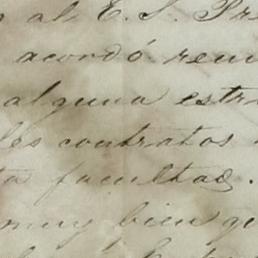 al E. S. Pre
acordó rem
alguna estr
les contratos
ta facultad.
muy bien qu